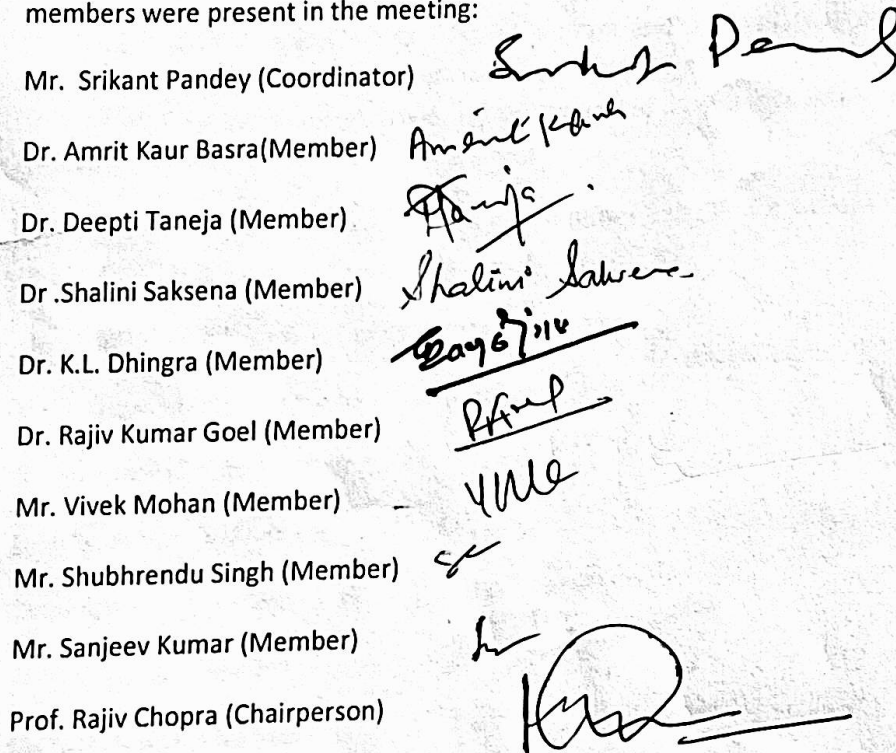 members were present in the meeting:
Mr. Srikant Pandey (Coordinator)
Dr. Amrit Kaur Basra(Member) Amrit Kaur
Dr. Deepti Taneja (Member)
Dr .Shalini Saksena (Member) Shalini Saksena
Dr. K.L. Dhingra (Member)
Dr. Rajiv Kumar Goel (Member)
Mr. Vivek Mohan (Member)
Mr. Shubhrendu Singh (Member)
Mr. Sanjeev Kumar (Member)
Prof. Rajiv Chopra (Chairperson)